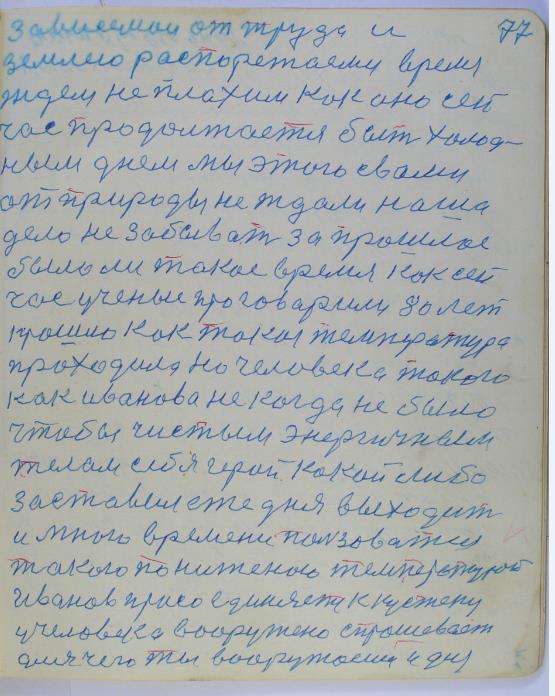 77
зависемаи от труда и
землею распоретаеми время
ждем не плахим как оно сей
час продолжается быт холод-
ным днем мы этого свами
от природы не ждали наша
дело не забыват за прошлое
было ли такое время как сей
час ученые проговарили 80 лет
прошло как такая температура
проходила но человека такого
как иванова не когда не было
чтобы чистым энергичным
телам себя герой какой либо
заставил еже дня выходит
и много времени ползоватися
такого пониженою температурой
Иванов присоединяет к кустепу
учеловека вооружено спрашевает
для чего ты вооружоеш и для